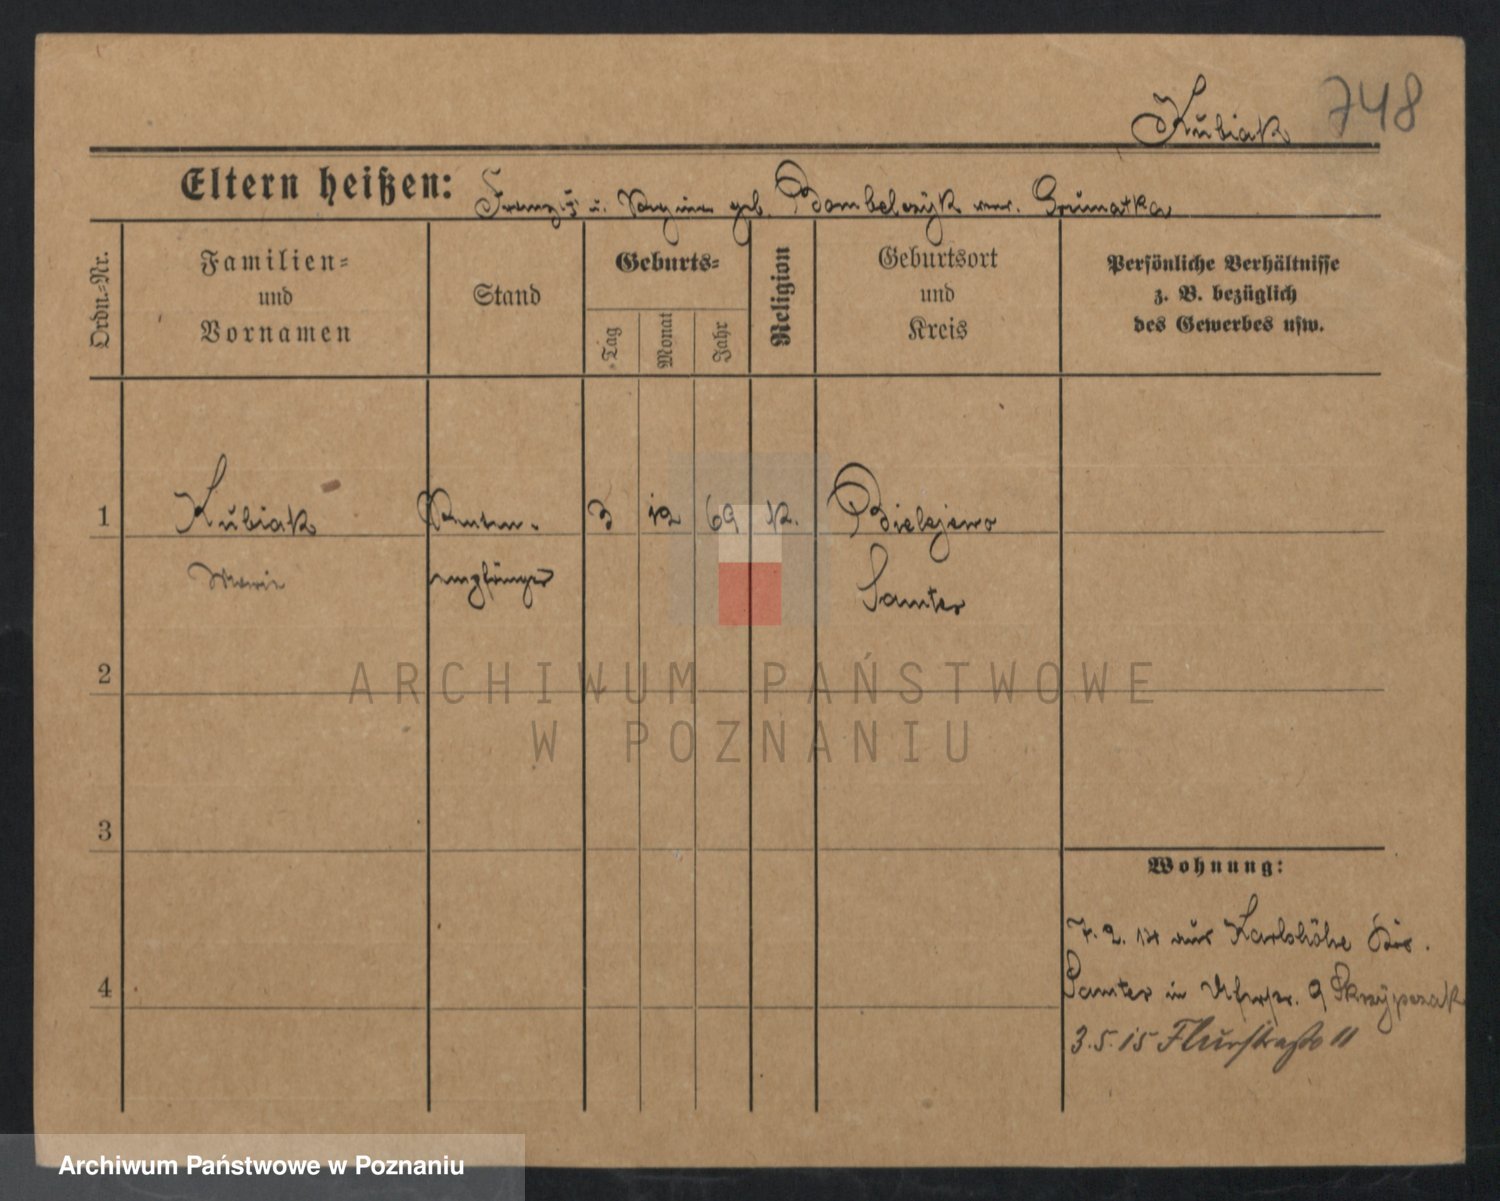 Kubiak 748
Eltern heißen: geb. Bombelczyk Grumatka
Ordn.-Nr.
Familien-
und
Vornamen
Stand
Geburts-
Tag
Monat
Jahr
Religion
Geburtsort
und
Kreis
Persönliche Verhältnisse
z. B. bezüglich
des Gewerbes usw.
1 Kubiak Renten- 3 12 69 K. Bielejewo
Marie empfänger Samter
2
3
4
Wohnung:
7. 2. 14 aus Karlshöhe
Samter in 9 Skrzypczak
3.5.15 Flurstraße 11
ARCHIWUM PAŃSTWOWE
W POZNANIU
Archiwum Państwowe w Poznaniu